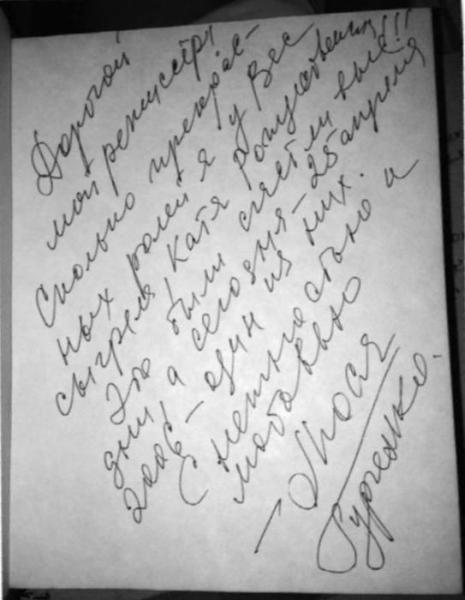 Дорогой
мой режиссёр!
Сколько прекрас-
ных ролей я у Вас
сыграла! Катя Рождественская!!!
Это были счастливые
дни! а сегодня - 25 апреля
2006 - один из них.
С нежностью и
любовью
Люся
Гурченко.